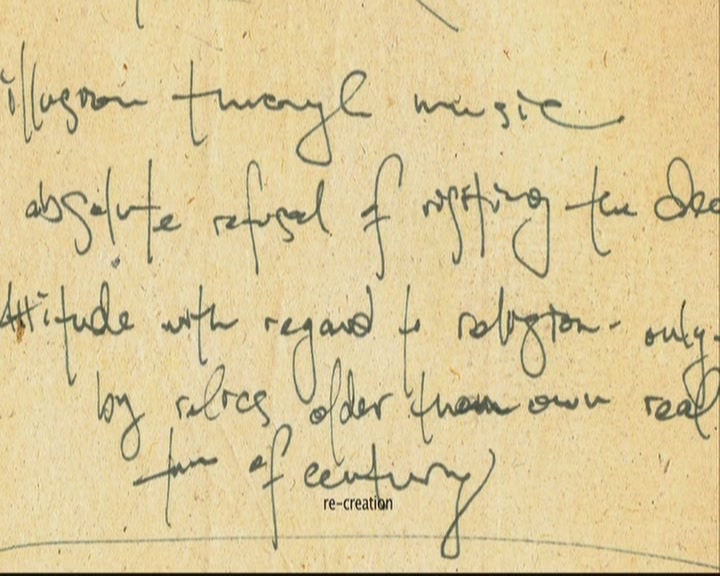 illusion through music
absolute refusal of visiting the
attitude with regard to religion - only
by relics older than own real
turn of century
re-creation